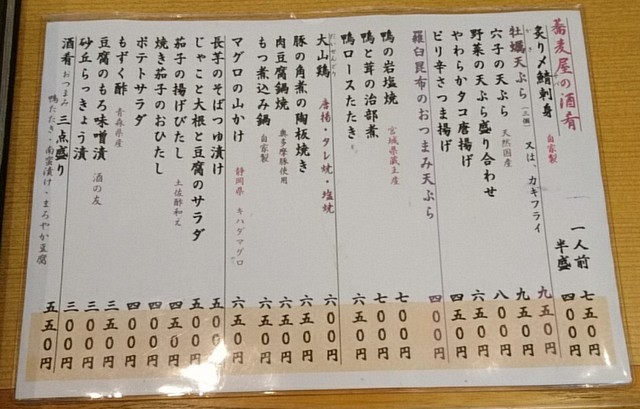 蕎麦屋の酒肴
炙り〆鯖刺身 自家製 一人前 七五〇円
半盛 四〇〇円
牡蠣天ぷら (三個) 又は、カキフライ 九五〇円
穴子の天ぷら 天然国産 九五〇円
野菜の天ぷら盛り合わせ 八〇〇円
やわらかタコ唐揚げ 六五〇円
ピリ辛さつま揚げ 四五〇円
羅臼昆布のおつまみ天ぷら 四〇〇円
鴨の岩塩焼 宮城県蔵王産 七〇〇円
鴨と茸の治部煮 七〇〇円
鴨ロースたたき 六五〇円
大山鶏 唐揚・タレ焼・塩焼 六〇〇円
豚の角煮の陶板焼き 六〇〇円
肉豆腐鍋焼 奥多摩豚使用 六五〇円
もつ煮込み鍋 自家製 六五〇円
マグロの山かけ 静岡県 キハダマグロ 六五〇円
長芋のそばつゆ漬け 五〇〇円
じゃこと大根と豆腐のサラダ 五〇〇円
茄子の揚げびたし 土佐酢和え 四五〇円
焼き茄子のおひたし 四〇〇円
ポテトサラダ 四〇〇円
もずく酢 青森県産 三五〇円
豆腐のもろ味噌漬 酒の友 三〇〇円
砂丘らっきょう漬 三〇〇円
酒肴 おつまみ 三点盛り 五五〇円
鴨たたき・南蛮漬け・まろやか豆腐